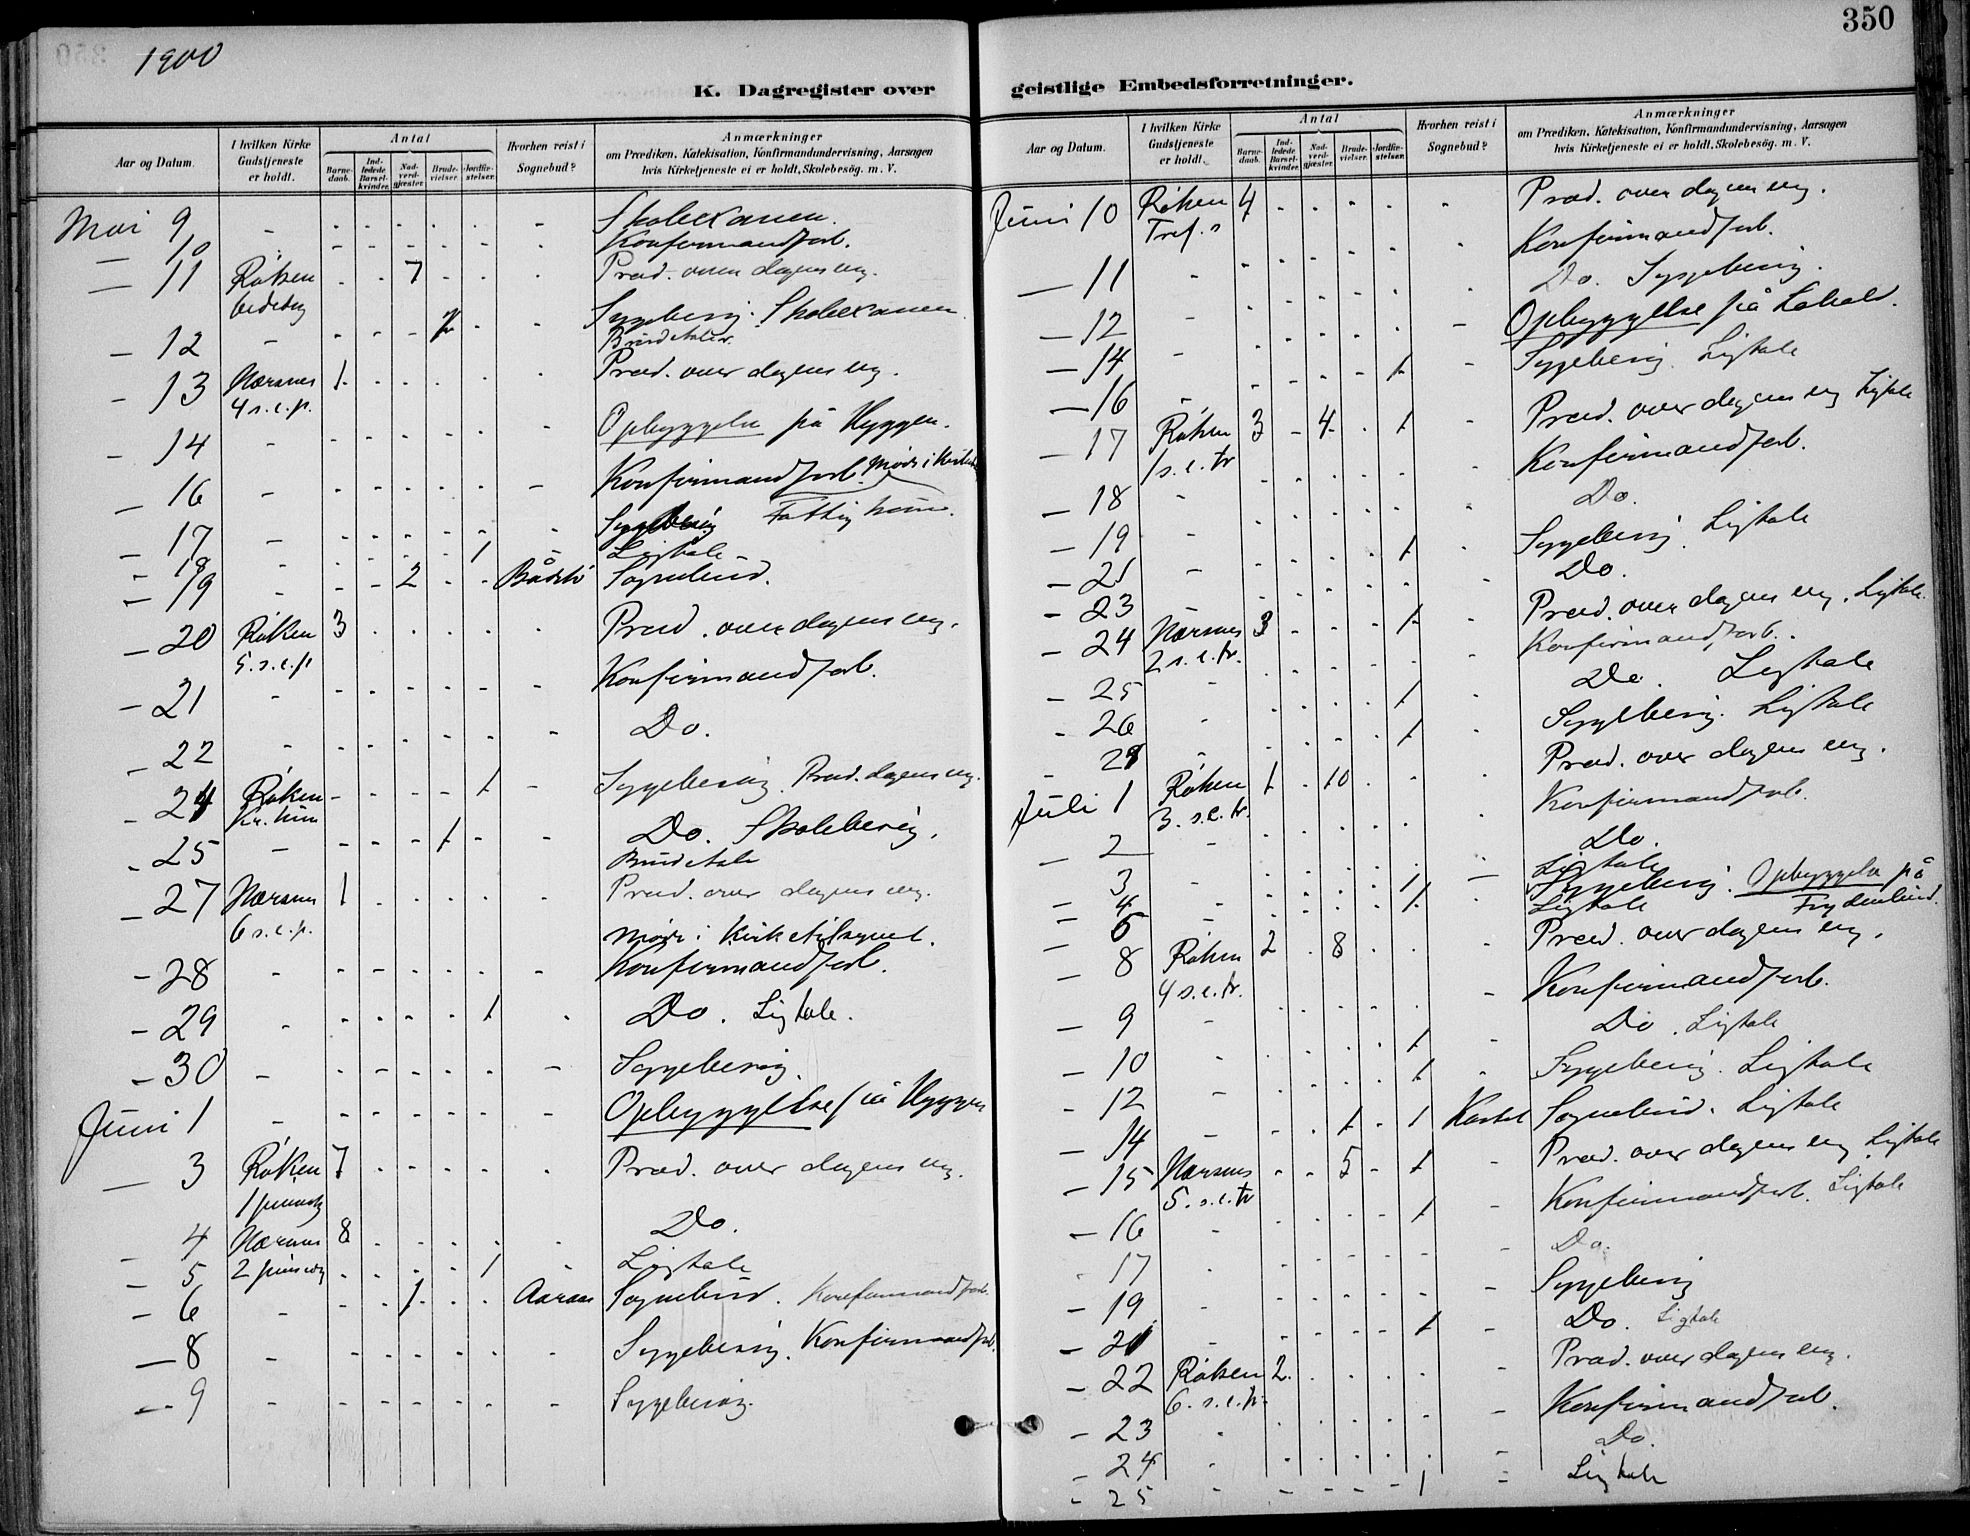 350
1900
K. Dagregister over geistlige Embedsforretninger.
Aar og Datum. I hvilken Kirke Gudstjeneste er holdt. Antal Barnedaab. Indledede Barselkvinder. Nadverdgjæster. Brudevielser. Jordfæstelser. Hvorhen reist i Sognebud? Anmærkninger om Prædiken, Katekisation, Konfirmandundervisning, Aarsagen hvis Kirketjeneste ei er holdt, Skolebesög. m. V.
Mai 9 - Skolexamen.
— 10 Konfirmandforb.
— 11 Røken 7 Præd. over dagens evg.
bededag
— 12 - 1 Sygebesøg. Skolexamen
Brudetaler.
— 13 Nærsnes 1 Præd. over dagens evg.
4 s. e. p.
— 14 - Opbyggelse på Hyggen.
— 16 - Konfirmandforb. Møde i
— 17 - Sygebesøg
— 18 - 1 Ligtale
— 19 - 2 Bådstø Sognebud.
— 20 Røken 3 Præd. over dagens evg.
5. s. e. p
— 21 - Konfirmandforb.
— 22 - Do.
— 24 Røken 1 Sygebesøg. Præd. dagens evg.
Kr. him
— 25 - 1 Do. Skolebesøg.
Brudetale
— 27 Nærsnes 1 Præd. over dagens evg.
6 s. e. p. Møde i Kirketilsynet.
— 28 - Konfirmandforb.
— 29 - 1 Do. Ligtale.
— 30 - Sygebesøg.
Juni 1 - Opbyggelse på Hyggen
— 3 Røken 7 Præd. over dagens evg.
1 pinsedg
— 4 Nærsnes 8 Do.
— 5 2 pinsedg 1 Ligtale
— 6 - 1 Aaraas Sognebud. Konfirmandforb.
— 8 - Sygebesøg. Konfirmandforb.
— 9 - Sygebesøg.
Aar og Datum. I hvilken Kirke Gudstjeneste er holdt. Antal Barnedaab. Indledede Barselkvinder. Nadverdgjæster. Brudevielser. Jordfæstelser. Hvorhen reist i Sognebud? Anmærkninger om Prædiken, Katekisation, Konfirmandundervisning, Aarsagen hvis Kirketjeneste ei er holdt, Skolebesög. m. V.
Juni 10 Røken 4 Præd. over dagens evg.
Tref. s
— 11 - Konfirmandforb.
— 12 - Do. Sygebesøg.
— 14 - Opbyggelse på
— 16 - 1 Sygebesøg. Ligtale
— 17 Røken 3 - 4 - 1 Præd. over dagens evg Ligtale
1 s. e. tr
— 18 - Konfirmandforb.
— 19 - Do.
— 21 - 1 Sygebesøg. Ligtale
— 23 - Do.
— 24 Nærsnes 3 1 Præd. over dagens evg. Ligtale.
2 s. e. tr.
— 25 - Konfirmandforb.
— 26 - 1 Do. Ligtale
— 29 - 1 Sygebesøg. Ligtale
Juli 1 Røken 1 10 Præd. over dagens evg.
3. s. e. tr.
— 2 - Konfirmandforb.
— 3 Do.
— 4 - 1 Ligtale
Sygebesøg. Opbyggelse på
— 6 1 Ligtale Frydenlund.
— 8 Røken 2 8 Præd. over dagens evg.
4 s. e. tr.
— 9 - Konfirmandforb.
— 10 - 1 Do. Ligtale
— 12 - 1 Sygebesøg. Ligtale
— 14 - 1 - 1 Sognebud. Ligtale
— 15 Nærsnes 5 - 1 Præd. over dagens evg Ligtale
5. s. e. tr
— 16 - 1 Konfirmandforb. Ligtale
— 17 - Do.
— 19 - Sygebesøg
— 20 - 1 Do. Ligtale
— 22 Røken 2. Præd. over dagens evg.
6. s. e. tr.
— 23 - Konfirmandforb.
— 24 - Do.
— 25 - 1 Ligtale